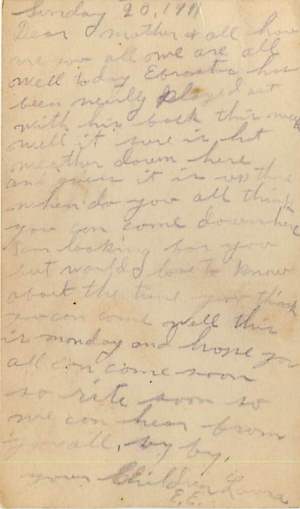 Sunday 20, 191
Dear mother & all how
are you all we are all
well today
been nearly played out
with his back this
well it sure is hot
weather down here
and guess it is up there
when do you all think
you can come down here
am looking for you
but would love to know
about the time you think
you can come well this
is monday and hope you
all can come soon
so rite soon so
we can hear from
you all, by by,
your Children Laura
E.E.